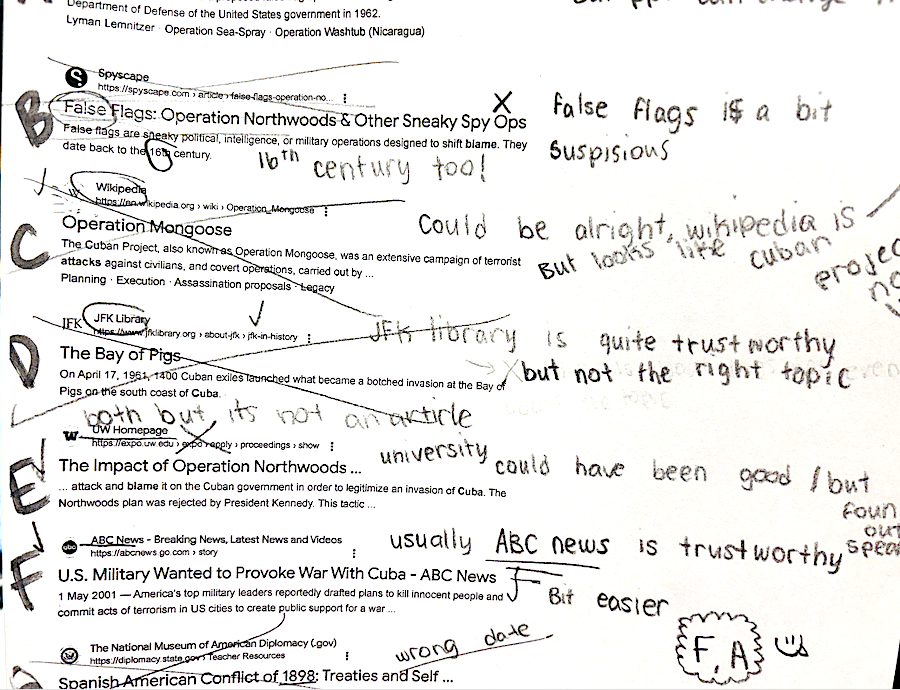 Department of Defense of the United States government in 1962.
Lyman Lemnitzer · Operation Sea-Spray · Operation Washtub (Nicaragua)
Spyscape
https://spyscape.com › article › false-flags-operation-no...
B
False Flags: Operation Northwoods & Other Sneaky Spy Ops
X
False flags is a bit
suspisious
False flags are sneaky political, intelligence, or military operations designed to shift blame. They
date back to the 16th century.
16th century too!
Wikipedia
https://en.wikipedia.org › wiki › Operation_Mongoose
C
Operation Mongoose
Could be alright, wikipedia is
But looks like cuban
The Cuban Project, also known as Operation Mongoose, was an extensive campaign of terrorist
attacks against civilians, and covert operations, carried out by ...
Planning · Execution · Assassination proposals · Legacy
JFK
JFK Library
https://www.jfklibrary.org › about-jfk › jfk-in-history
D
The Bay of Pigs
JFK library is quite trustworthy
but not the right topic
On April 17, 1961, 1400 Cuban exiles launched what became a botched invasion at the Bay of
Pigs on the south coast of Cuba.
both but, its not an article
W
UW Homepage
https://expo.uw.edu › expo › apply › proceedings › show
E
The Impact of Operation Northwoods ...
university could have been good / but
foun
out
... attack and blame it on the Cuban government in order to legitimize an invasion of Cuba. The
Northwoods plan was rejected by President Kennedy. This tactic ...
abc
ABC News - Breaking News, Latest News and Videos
https://abcnews.go.com › story
F
usually ABC news is trustworthy
U.S. Military Wanted to Provoke War With Cuba - ABC News
1 May 2001 — America's top military leaders reportedly drafted plans to kill innocent people and
commit acts of terrorism in US cities to create public support for a war ...
Bit easier
F, A
The National Museum of American Diplomacy (.gov)
https://diplomacy.state.gov › Teacher Resources
wrong date
Spanish American Conflict of 1898: Treaties and Self ...